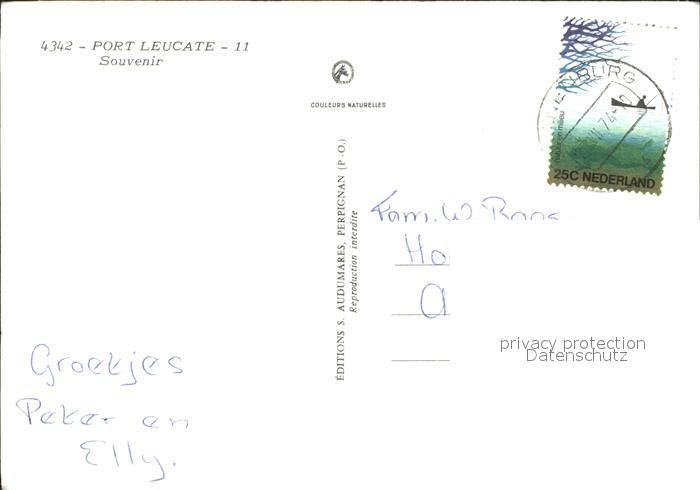 4342 - PORT LEUCATE - 11
Souvenir
COULEURS NATURELLES
ÉDITIONS S. AUDUMARES, PERPIGNAN (P.-O.)
Reproduction interdite
25C NEDERLAND
Fam. W
Ho
privacy protection
Datenschutz
Groetjes
Peter en
Elly.